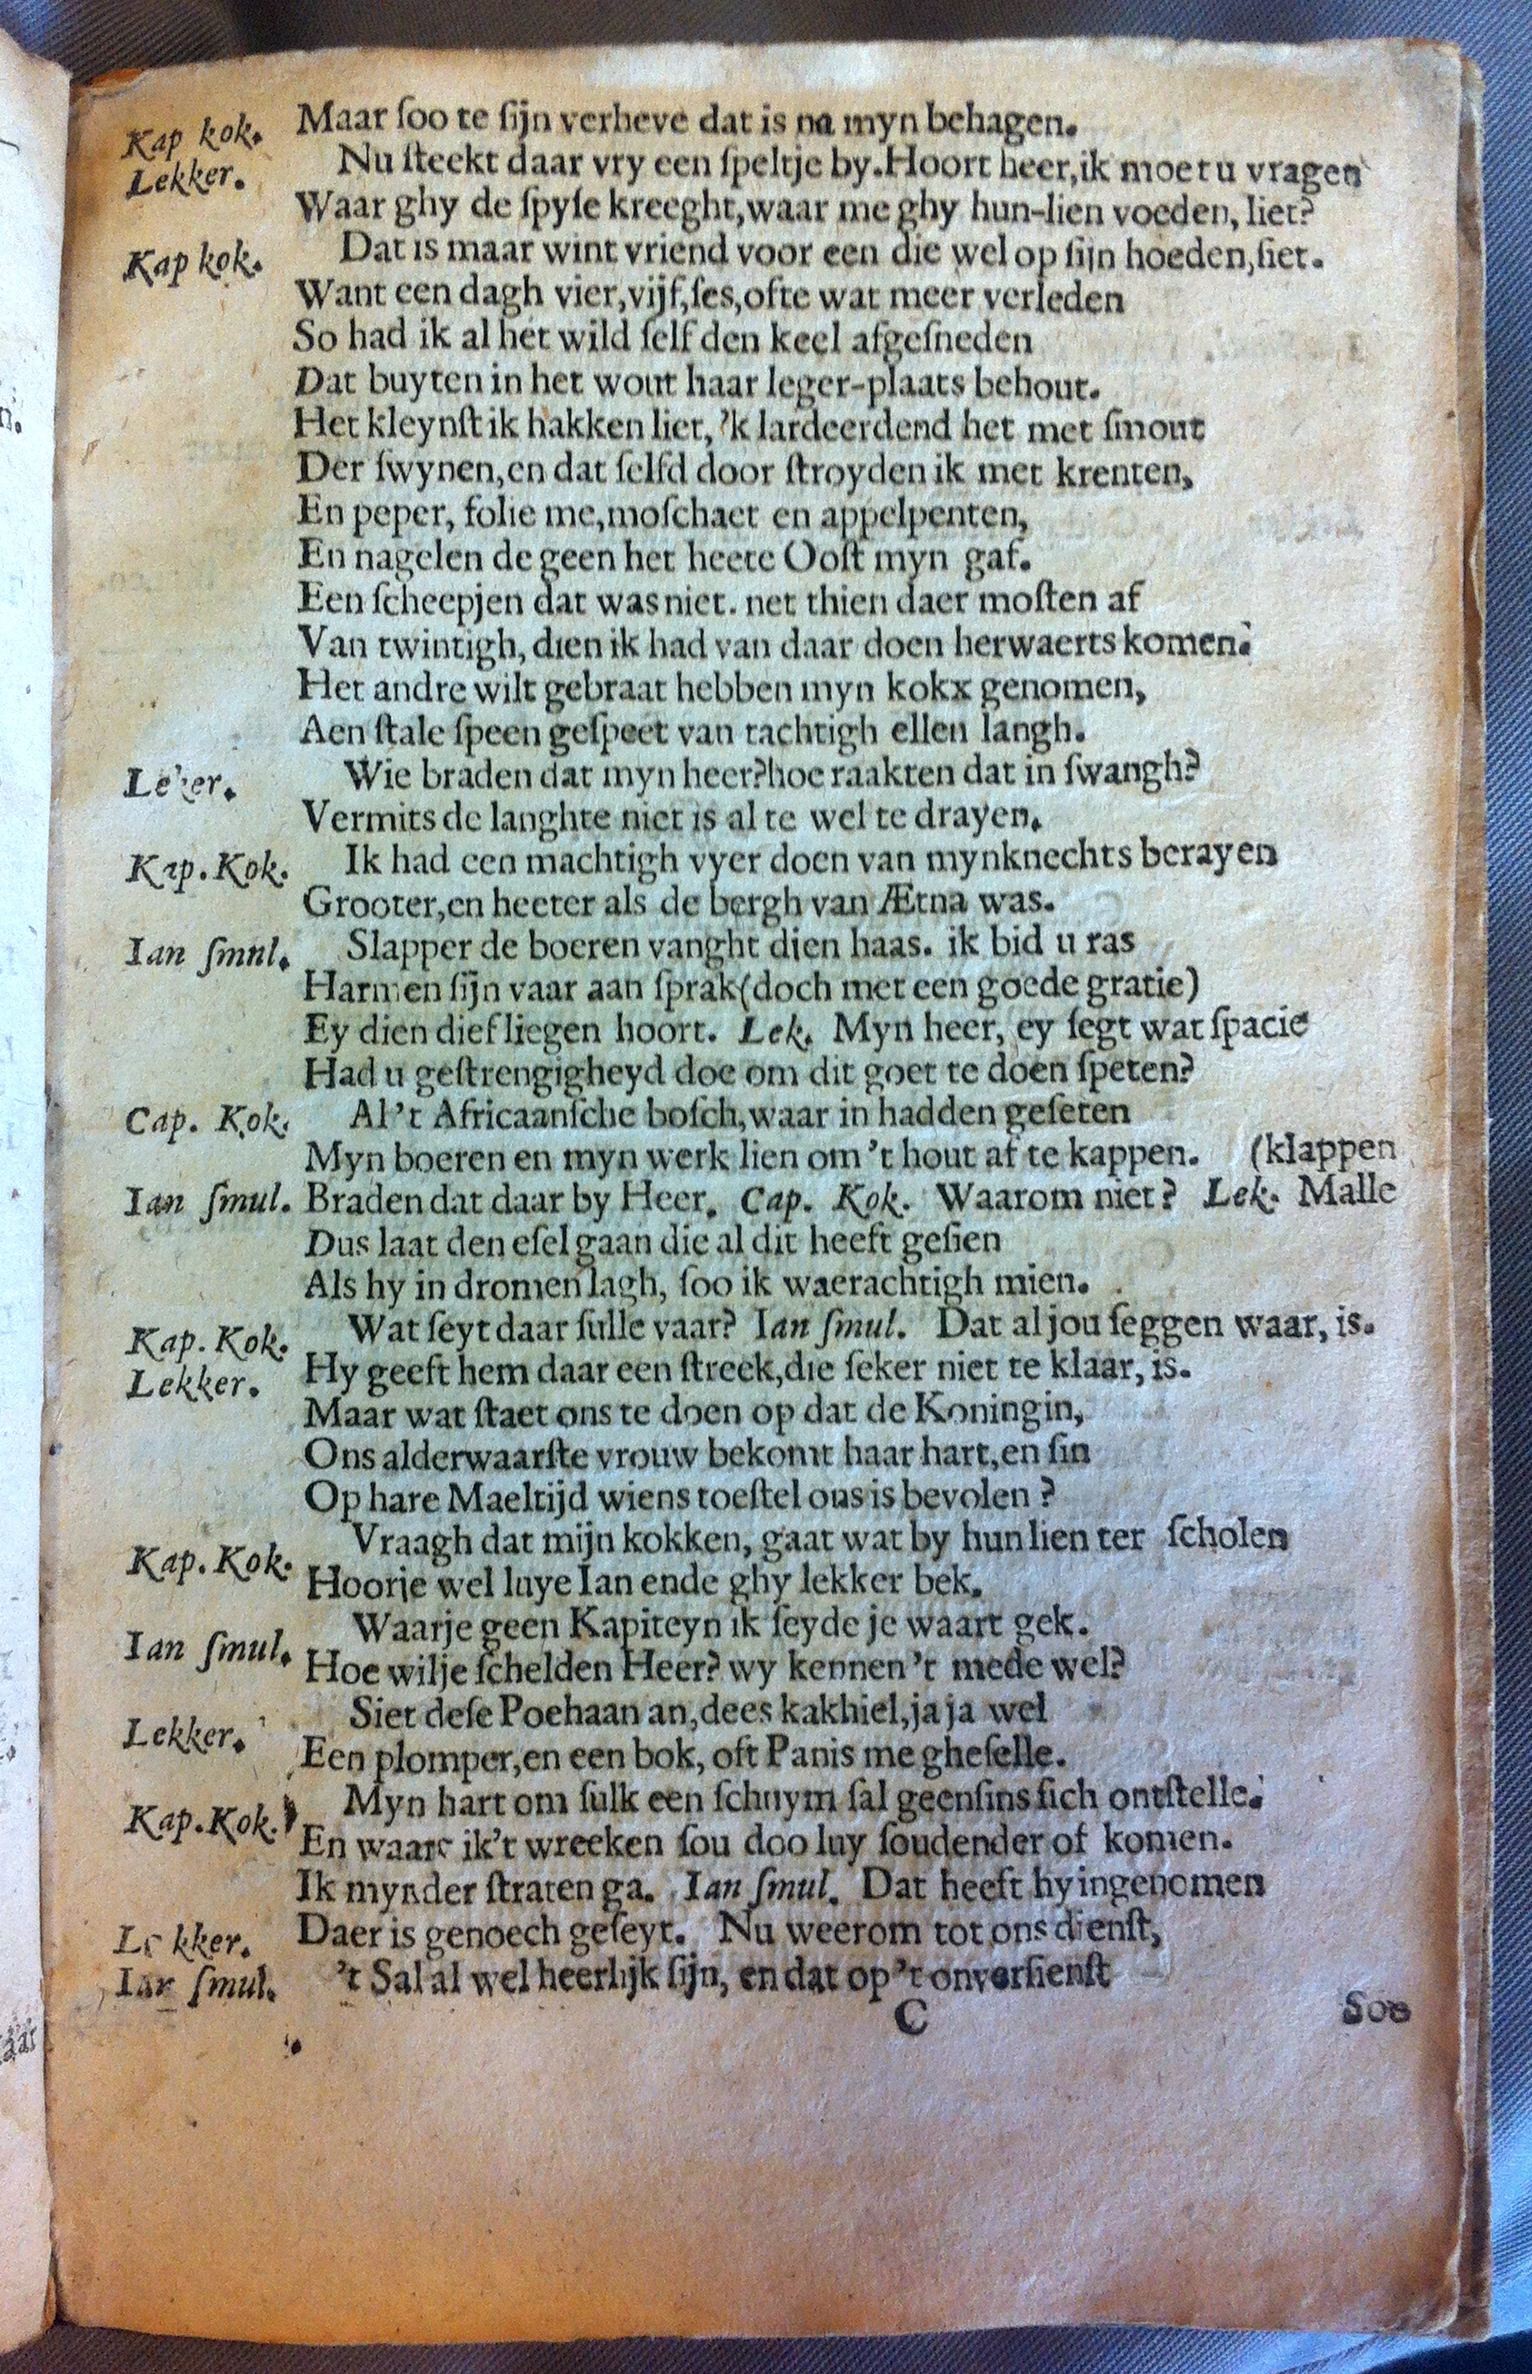 Kap kok. Maar ſoo te ſijn verheve dat is na myn behagen.
Lekker. Nu ſteekt daar vry een ſpeltje by. Hoort heer, ik moet u vragen
Waar ghy de ſpyſe kreeght, waar me ghy hun-lien voeden, liet?
Kap kok. Dat is maar wint vriend voor een die wel op ſijn hoeden, ſiet.
Want een dagh vier, vijf, ſes, ofte wat meer verleden
So had ik al het wild ſelf den keel afgeſneden
Dat buyten in het wout haar leger-plaats behout.
Het kleynſt ik hakken liet, 'k lardeerdend het met ſmout
Der ſwynen, en dat ſelfd door ſtroyden ik met krenten,
En peper, folie me, moſchaet en appelpenten,
En nagelen de geen het heete Ooſt myn gaf.
Een ſcheepjen dat was niet. net thien daer moſten af
Van twintigh, dien ik had van daar doen herwaerts komen.
Het andre wilt gebraat hebben myn kokx genomen,
Aen ſtale ſpeen geſpeet van tachtigh ellen langh.
Le er. Wie braden dat myn heer? hoe raakten dat in ſwangh?
Vermits de langhte niet is al te wel te drayen.
Kap. Kok. Ik had een machtigh vyer doen van mynknechts berayen
Grooter, en heeter als de bergh van Ætna was.
Ian ſmul. Slapper de boeren vanght dien haas. ik bid u ras
Harmen ſijn vaar aan ſprak (doch met een goede gratie)
Ey dien dief liegen hoort. Lek. Myn heer, ey ſegt wat ſpacie
Had u geſtrengigheyd doe om dit goet te doen ſpeten?
Cap. Kok. Al 't Africaanſche boſch, waar in hadden geſeten
Myn boeren en myn werk lien om 't hout af te kappen. (klappen
Ian ſmul. Braden dat daar by Heer. Cap. Kok. Waarom niet? Lek. Malle
Dus laat den eſel gaan die al dit heeft geſien
Als hy in dromen lagh, ſoo ik waerachtigh mien.
Kap. Kok. Wat ſeyt daar ſulle vaar? Ian ſmul. Dat al jou ſeggen waar, is.
Lekker. Hy geeft hem daar een ſtreek, die ſeker niet te klaar, is.
Maar wat ſtaet ons te doen op dat de Koningin,
Ons alderwaarſte vrouw bekomt haar hart, en ſin
Op hare Maeltijd wiens toeſtel ons is bevolen?
Kap. Kok. Vraagh dat mijn kokken, gaat wat by hun lien ter ſcholen
Hoorje wel luye Ian ende ghy lekker bek.
Ian ſmul. Waarje geen Kapiteyn ik ſeyde je waart gek.
Hoe wilje ſchelden Heer? wy kennen 't mede wel?
Lekker. Siet deſe Poehaan an, dees kakhiel, ja ja wel
Een plomper, en een bok, oft Panis me gheſelle.
Kap. Kok. Myn hart om ſulk een ſchuym ſal geenſins ſich ontſtelle.
En waare ik 't wreeken ſou doo luy ſoudender of komen.
Ik mynder ſtraten ga. Ian ſmul. Dat heeft hy ingenomen
Lekker. Daer is genoech geſeyt. Nu weerom tot ons dienſt,
Ian ſmul. 't Sal al wel heerlijk ſijn, en dat op 't onverſienſt
C Soo